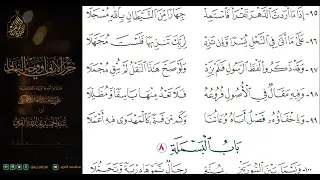 ٩٥- إِذَا مَا أَرَدْتَ الدَّهْرَ تَقْرَأُ فَاسْتَعِذْ جِهَارًا مِنَ الشَّيْطَانِ بِاللَّهِ مُسْجَلَا
٩٦- عَلَى مَا أَتَى فِي النَّحْلِ يُسْرًا وَإِنْ تَزِدْ لِرَبِّكَ تَنْزِيهًا فَلَسْتَ مُجَهَّلَا
٩٧- وَقَدْ ذَكَرُوا لَفْظَ الرَّسُولِ فَلَمْ يَزِدْ وَلَوْ صَحَّ هَذَا النَّقْلُ لَمْ يُبْقِ مُجْمَلَا
٩٨- وَفِيهِ مَقَالٌ فِي الْأُصُولِ فُرُوعُهُ فَلَا تَعْدُ مِنْهَا بَاسِقًا وَمُظَلِّلَا
٩٩- وَإِخْفَاؤُهُ فَصْلٌ أَبَاهُ وُعَاتُنَا وَكَمْ مِنْ فَتًى كَالْمَهْدَوِي فِيهِ أَعْمَلَا
بَابُ الْبَسْمَلَةِ
٨
١٠٠- وَبَسْمَلَ بَيْنَ السُّورَتَيْنِ بِسُنَّةٍ رِجَالٌ نَمَوْهَا دِرْيَةً وَتَحَمُّلَا